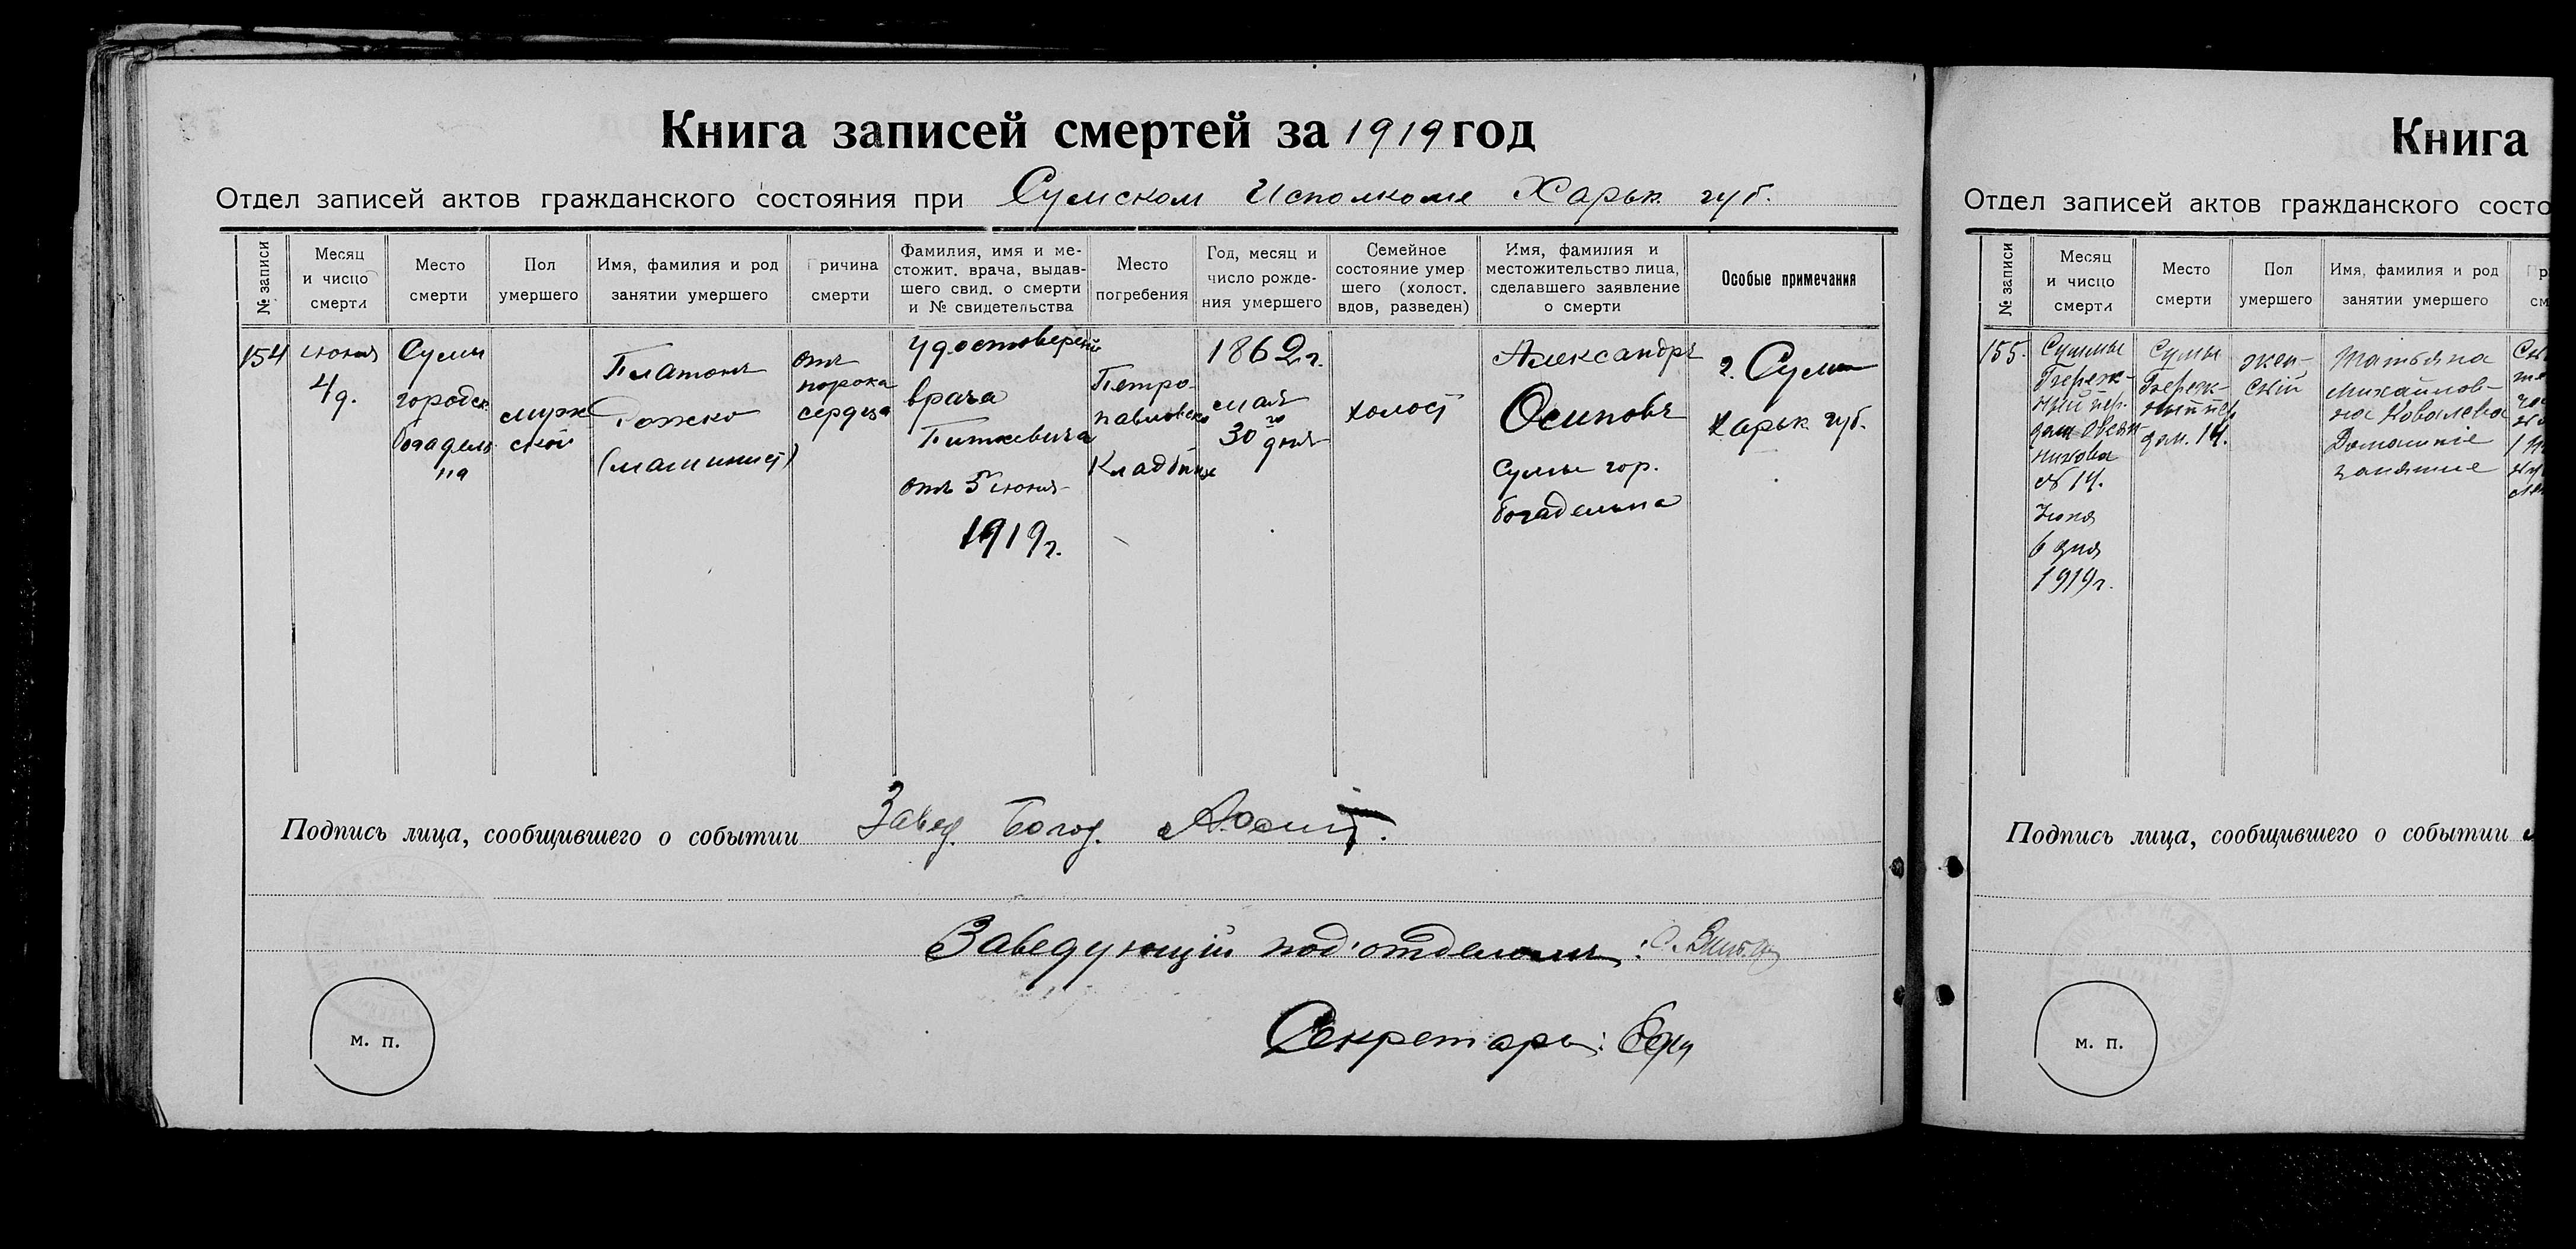 Книга записей смертей за 1919 год
Отдел записей актов гражданского состояния при Сумском Исполкоме Харьк. губ.
№ записи
Месяц
и число
смерти
Место
смерти
Пол
умершего
Имя, фамилия и род
занятии умершего
Причина
смерти
Фамилия, имя и ме-
стожит. врача, выдав-
шего свид. о смерти
и № свидетельства
Место
погребения
Год, месяц и
число рожде-
ния умершего
Семейное
состояние умер
шего (холост.
вдов, разведен)
Имя, фамилия и
местожительство лица,
сделавшего заявление
о смерти
Особые примечания
154
июня
4 д.
Сумы
городск.
богадель
на
муж
ской
Платонъ
Рожко
(машинист)
отъ
порока
сердца
Удостоверение
врача
Питкевича
отъ 5 июня
1919 г.
Петро-
павловско
Кладбище
1862 г.
мая
30 го дня
холост
Александръ
Осиповъ
Сумы гор.
богадельна
г. Сумы
Харьк губ.
Подпись лица, сообщившего о событии Завед. Богод.
Заведующій под'отделомъ:
Секретарь:
м. п.
Книга
Отдел записей актов гражданского состо
№ записи
Месяц
и число
смерти
Место
смерти
Пол
умершего
Имя, фамилия и род
занятии умершего
Пр
см
155.
Сумы
Береж-
ный пер.
дом Овсян-
никова
№ 14.
Июня
6 дня
1919 г.
Сумы
Береж-
ный пер
дом. 14.
жен-
скій
Татьяна
Михайлов-
на Ковалева
Домашніе
занятие
Подпись лица, сообщившего о событии
м. п.